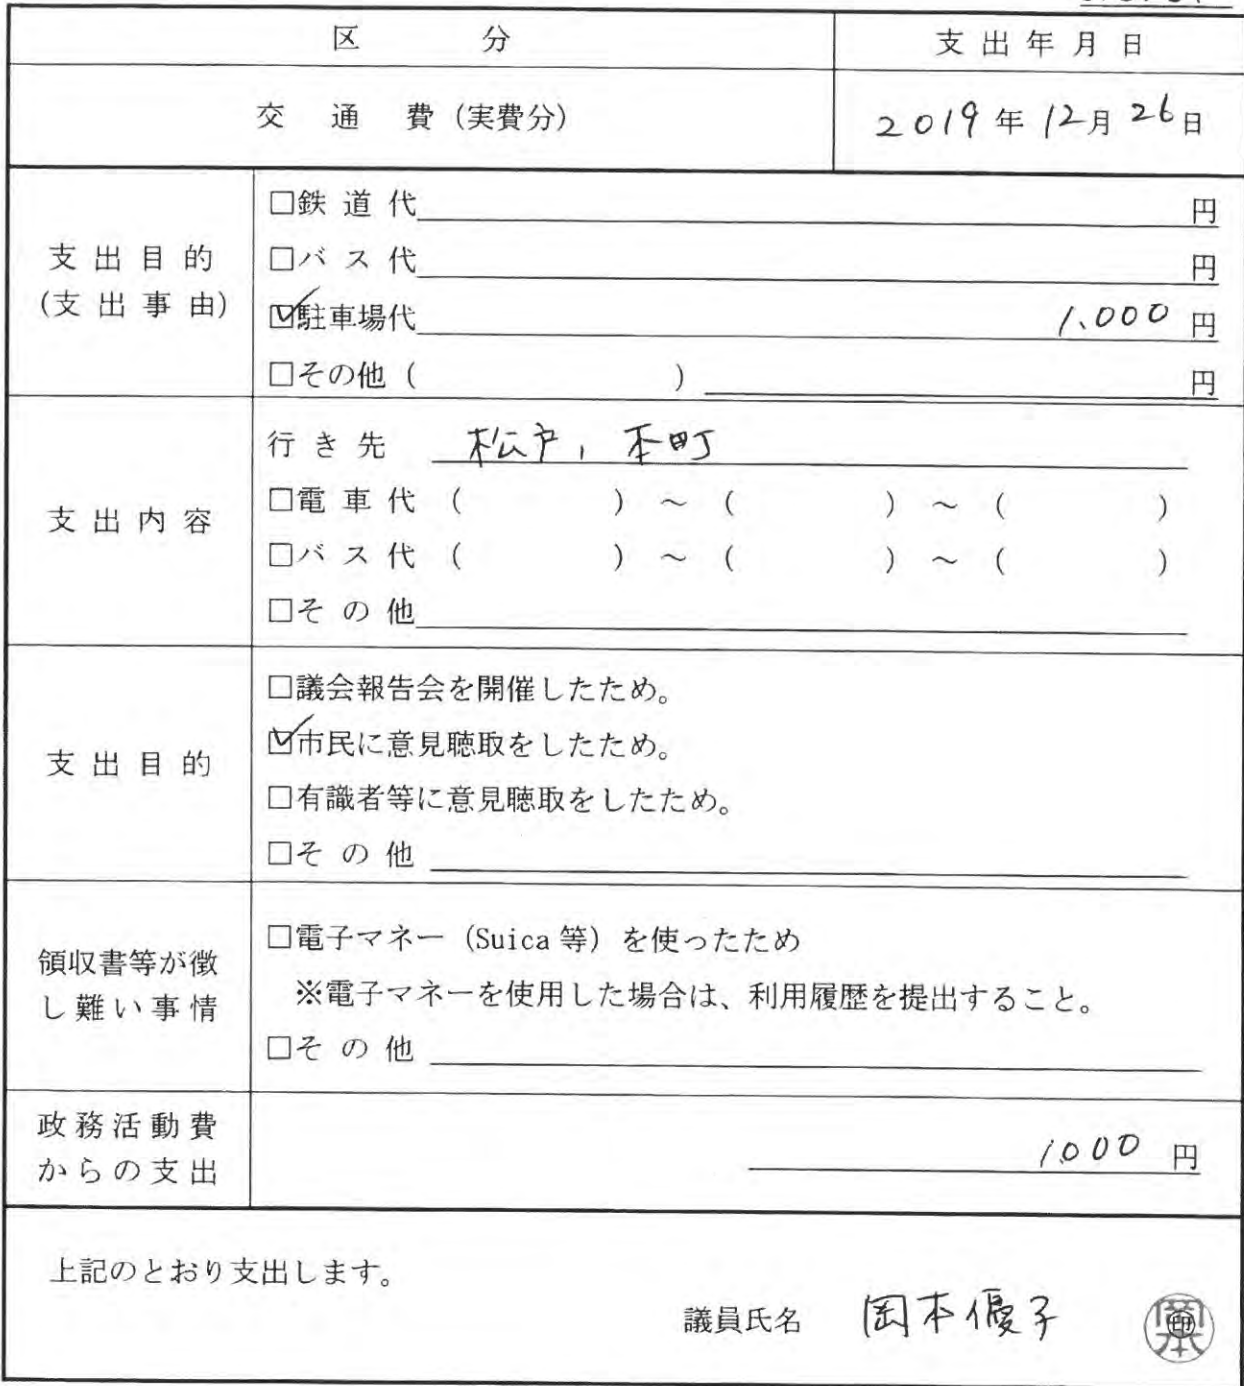 区 分
支出年月日
交 通 費 (実費分)
2019年12月26日
支出目的
(支出事由)
□鉄道代 円
□バス代 円
☑駐車場代 1,000 円
□その他 ( ) 円
支出内容
行き先 松戸, 本町
□電車代 ( ) ～ ( ) ～ ( )
□バス代 ( ) ～ ( ) ～ ( )
□その他
支出目的
□議会報告会を開催したため。
☑市民に意見聴取をしたため。
□有識者等に意見聴取をしたため。
□その他
領収書等が徴
し難い事情
□電子マネー (Suica等) を使ったため
※電子マネーを使用した場合は、利用履歴を提出すること。
□その他
政務活動費
からの支出
1000 円
上記のとおり支出します。
議員氏名 岡本優子 印